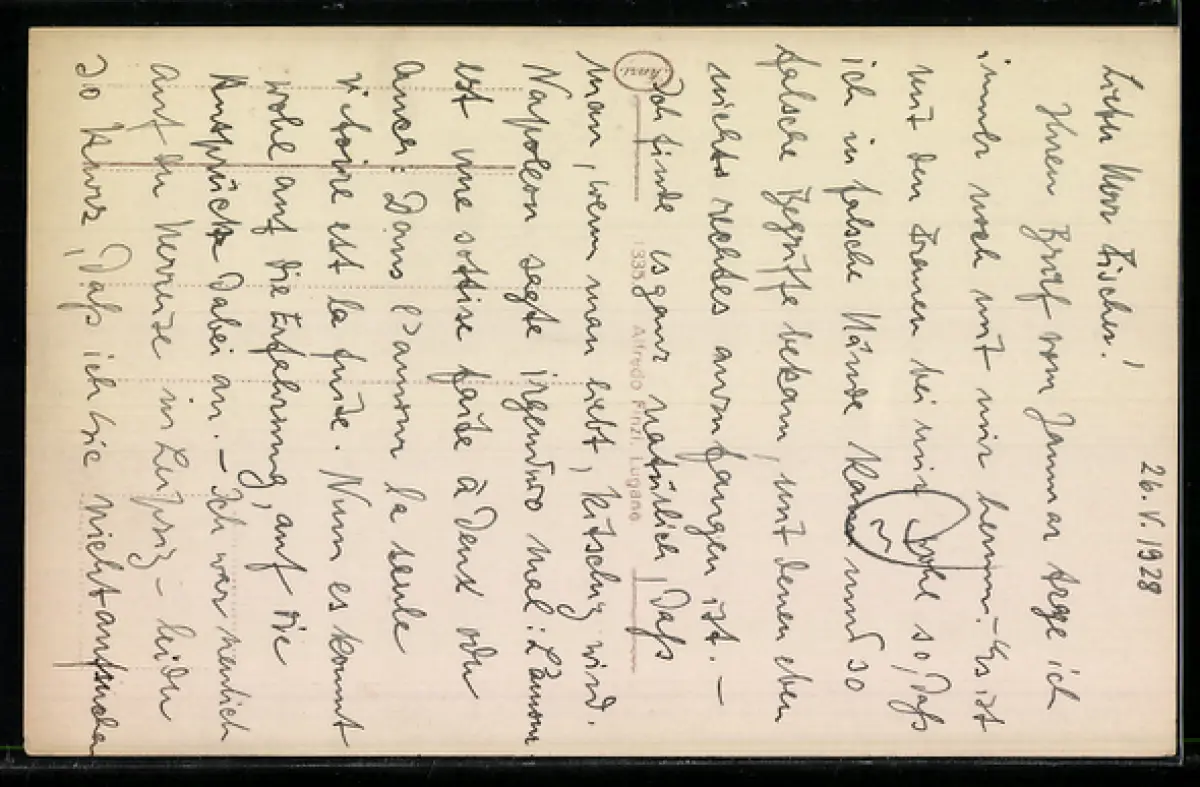 26.V.1928
Lieber Herr Fischer!
Ihren Brief vom Januar trage ich
immer noch mit mir herum. – Es ist
mit den Frauen bei mir wohl so, daß
ich in falsche Hände kam und so
falsche Begriffe bekam, mit denen eben
nichts rechtes anzufangen ist. –
Ich finde es ganz natürlich, daß
man, wenn man liebt, kitschig wird.
Napoleon sagte irgendwo mal: L'amour
est une sottise faite à deux oder
amen: Dans l'amour la seule
victoire est la fuite. Nun es kommt
wohl auf die Erfahrung, auf die
Ansprüche dabei an. – Ich war neulich
auf der Herreise in Leipzig – leider
so kurz, daß ich Sie nicht aufsuchen
1335 Alfredo Finzi, Lugano